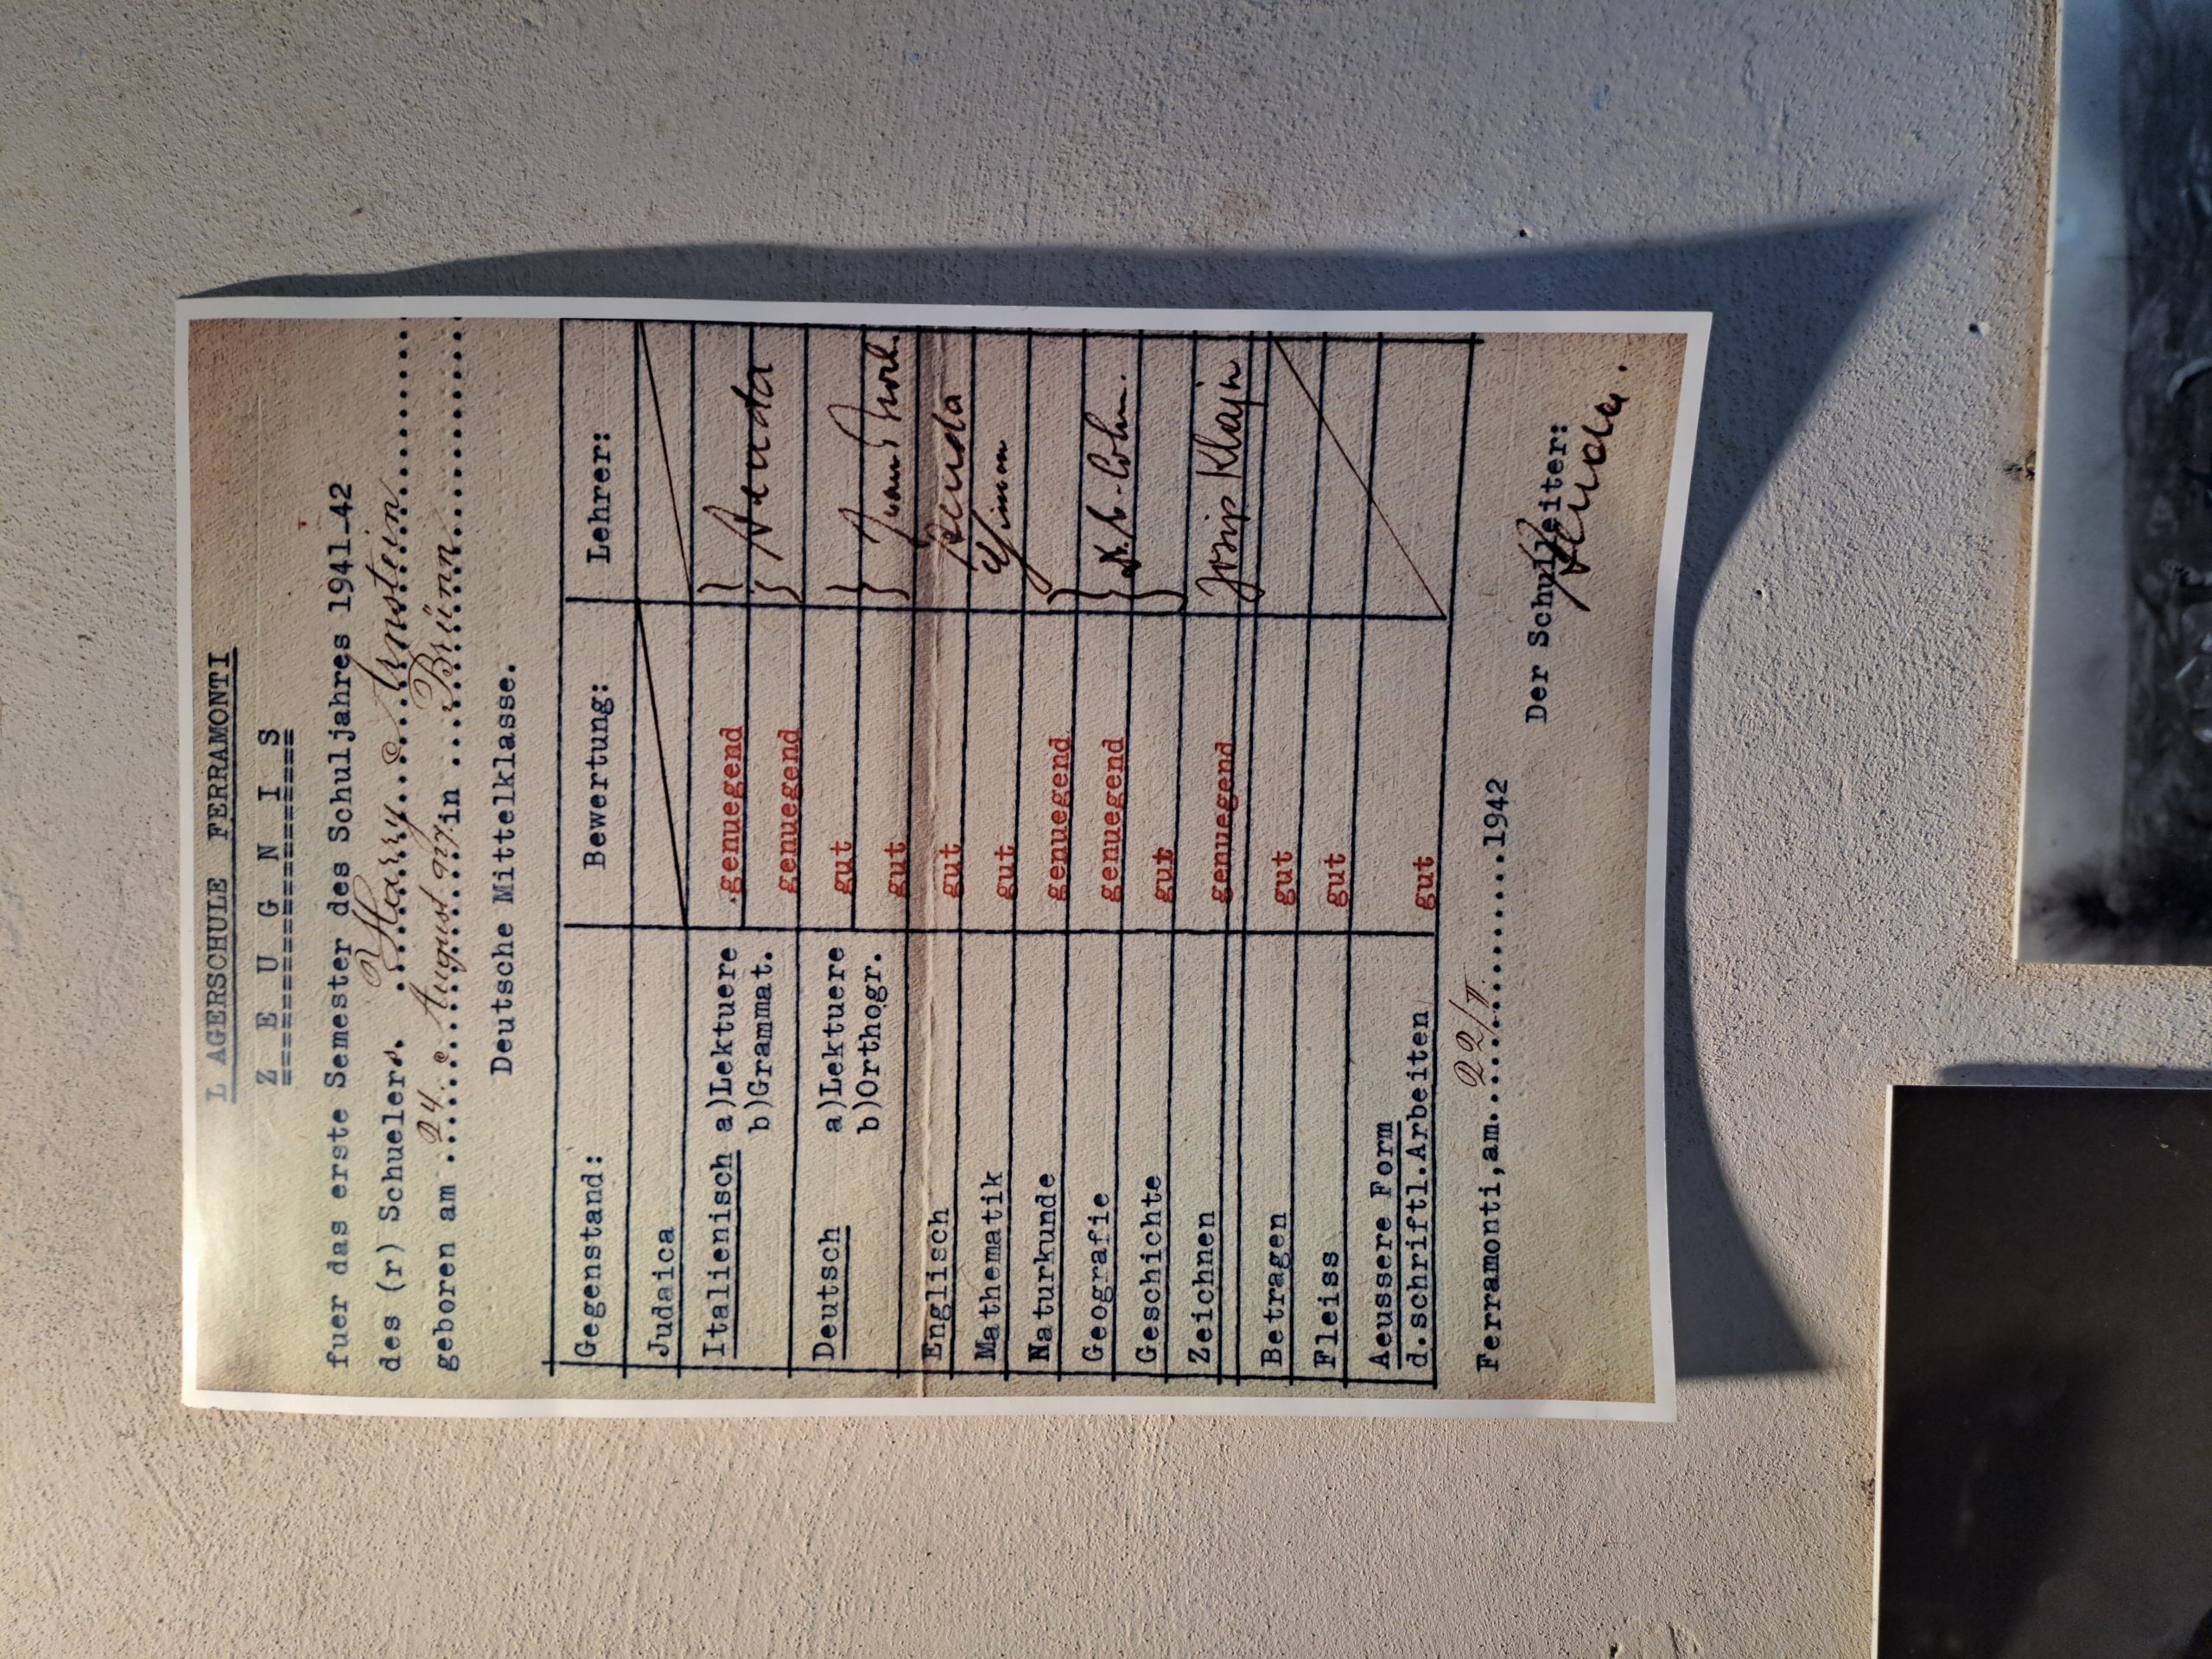 L AGERSCHULE FERRAMONTI
Z E U G N I S
fuer das erste Semester des Schuljahres 1941-42
des (r) Schuelers. Harry Arnstein
geboren am 24. August in Brünn
Deutsche Mittelklasse.
Gegenstand: Bewertung: Lehrer:
Judaica
Italienisch a)Lektuere genuegend
b)Grammat. genuegend
Deutsch a)Lektuere gut
b)Orthogr. gut
Englisch gut
Mathematik gut Simon
Naturkunde genuegend
Geografie genuegend Cohn.
Geschichte gut
Zeichnen genuegend Josip Klajn
Betragen gut
Fleiss gut
Aeussere Form
d.schriftl.Arbeiten gut
Ferramonti,am 22/II 1942
Der Schulleiter: